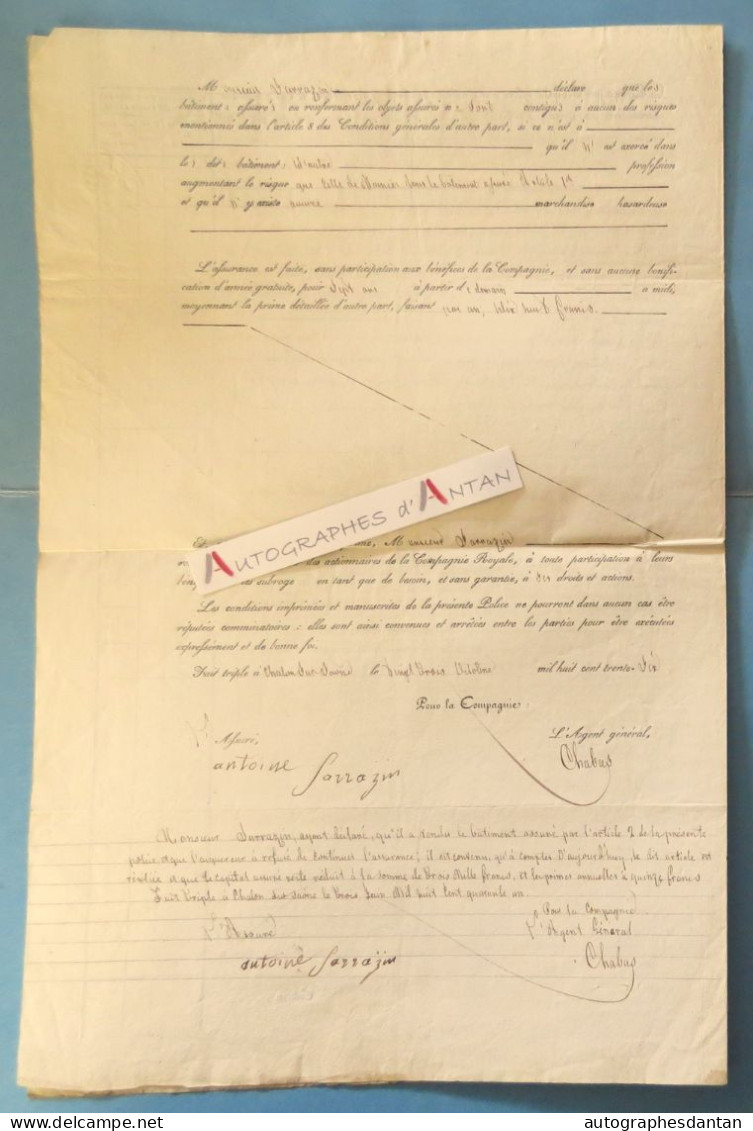 Monsieur Sarrazin déclare que le(s)
bâtiment(s) assuré(s) ou renfermant les objets assurés ne sont contigu(s) à aucun des risques
mentionnés dans l'article 8 des Conditions générales d'autre part, si ce n'est à
qu'il n' est exercé dans
le(s) dit(s) bâtiment(s) d'autre profession
augmentant le risque que celle de dans le bâtiment assuré
et qu'il n' y existe aucune marchandise hasardeuse
L'assurance est faite, sans participation aux bénéfices de la Compagnie, et sans aucune bonifi-
cation d'année gratuite, pour Sept ans à partir de demain à midi,
moyennant la prime détaillée d'autre part, faisant par an, francs.
AUTOGRAPHES d'ANTAN
Monsieur Sarrazin
des actionnaires de la Compagnie Royale, à toute participation à leurs
subroge en tant que de besoin, et sans garantie, à ses droits et actions.
Les conditions imprimées et manuscrites de la présente Police ne pourront dans aucun cas être
réputées comminatoires : elles sont ainsi convenues et arrêtées entre les parties pour être exécutées
expressément et de bonne foi.
Fait triple à Chalon sur Saône le vingt trois Octobre mil huit cent trente-Six
Pour la Compagnie :
L'Assuré, L'Agent général,
antoine Sarrazin Chabas
Monsieur Sarrazin, ayant déclaré, qu'il a vendu le bâtiment assuré par l'article 2 de la présente
police et que l'acquéreur a refusé de continuer l'assurance; il est convenu, qu'à compter d'aujourd'huy, le dit article est
résilié et que le capital assuré reste réduit à la somme de trois mille francs, et les primes annuelles à quinze francs
Fait triple à Chalon sur Saône le trois Juin Mil huit Cent quarante un.
Pour la Compagnie
L'Assuré L'Agent Général
antoine Sarrazin Chabas
delcampe.net
autographesdantan